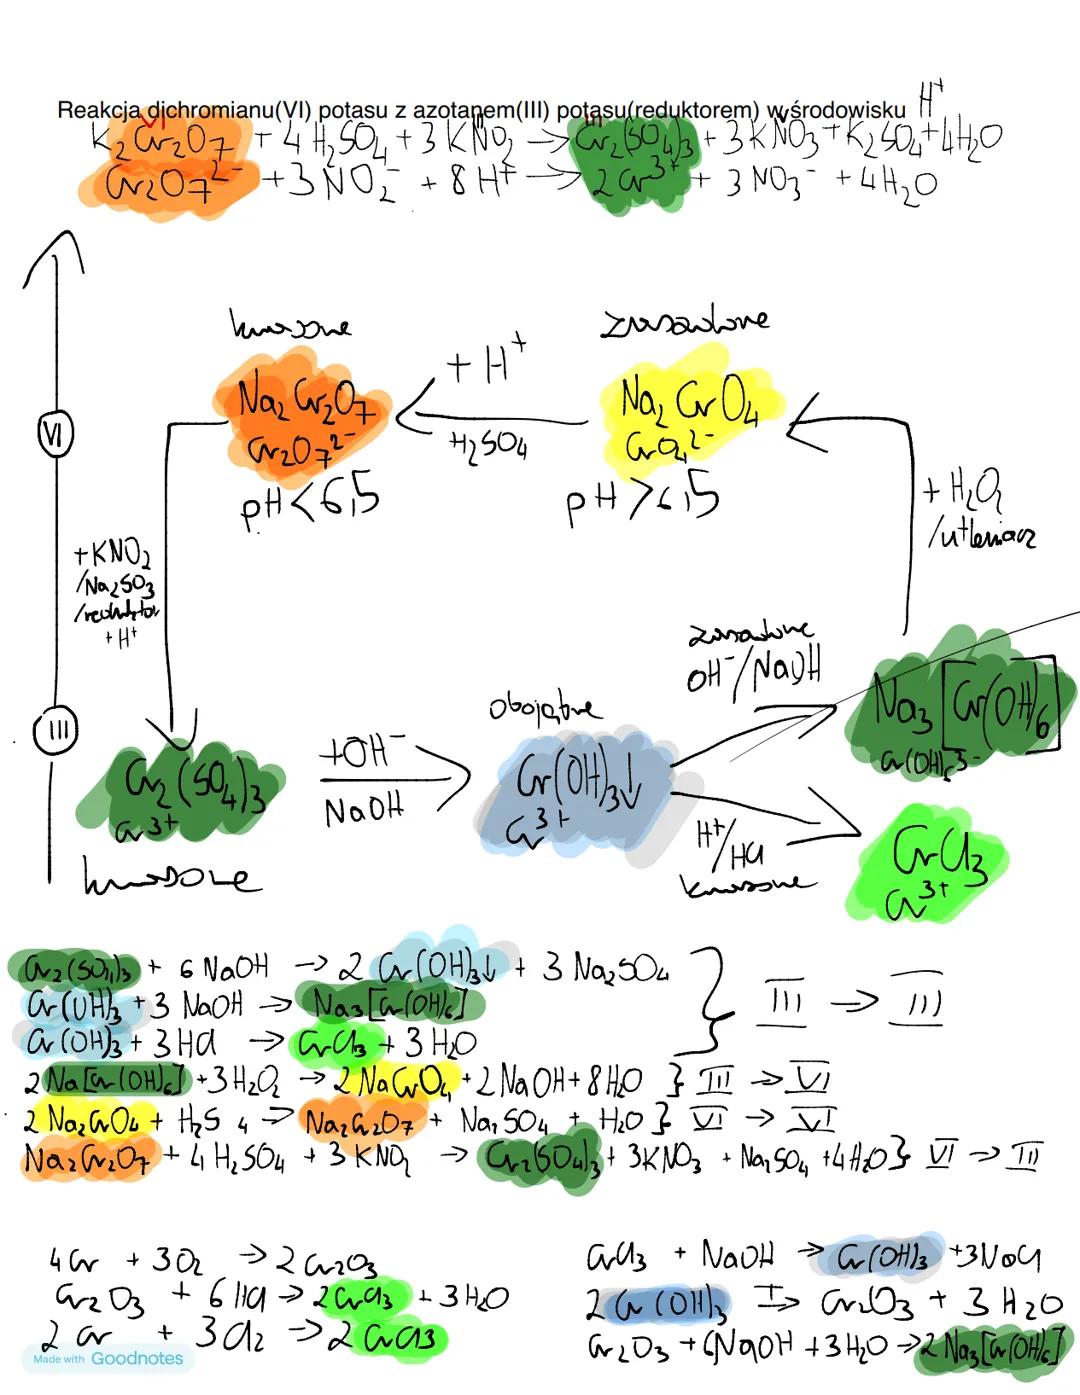 Reakcja dichromianu(VI) potasu z azotanem(III) potasu(reduktorem) w środowisku H⁺
VI III III
K₂Cr₂O₇ + 4H₂SO₄ + 3KNO₂ → Cr₂(SO₄)₃ + 3KNO₃ + K₂SO₄ + 4H₂O
Cr₂O₇²⁻ + 3NO₂⁻ + 8H⁺ → 2Cr³⁺ + 3NO₃⁻ + 4H₂O
kwasowe
zasadowe
+ H⁺
H₂SO₄
Na₂Cr₂O₇
Cr₂O₇²⁻
pH<6,5
Na₂CrO₄
CrO₄²⁻
pH>6,5
VI
+ H₂O₂
/utleniacz
+KNO₂
/Na₂SO₃
/reduktor
+H⁺
zasadowe
OH⁻/NaOH
Na₃[Cr(OH)₆]
Cr(OH)₆³⁻
III
obojętne
Cr₂(SO₄)₃
Cr³⁺
kwasowe
+OH⁻
NaOH
Cr(OH)₃↓
Cr³⁺
H⁺/HCl
kwasowe
CrCl₃
Cr³⁺
Cr₂(SO₄)₃ + 6 NaOH → 2 Cr(OH)₃↓ + 3 Na₂SO₄
Cr(OH)₃ + 3 NaOH → Na₃[Cr(OH)₆]
Cr(OH)₃ + 3HCl → CrCl₃ + 3H₂O
} III → III
2Na[Cr(OH)₆] + 3H₂O₂ → 2NaCrO₄ + 2NaOH + 8H₂O } III → VI
2 Na₂CrO₄ + H₂S 4 → Na₂Cr₂O₇ + Na₂SO₄ + H₂O } VI → VI
Na₂Cr₂O₇ + 4H₂SO₄ + 3KNO₂ → Cr₂(SO₄)₃ + 3KNO₃ + Na₂SO₄ + 4H₂O } VI → III
4Cr + 3O₂ → 2Cr₂O₃
Cr₂O₃ + 6HCl → 2CrCl₃ + 3H₂O
2 Cr + 3Cl₂ → 2 CrCl3
CrCl₃ + NaOH → Cr(OH)₃ + 3NaCl
2 Cr(OH)₃ T→ Cr₂O₃ + 3 H₂O
Cr₂O₃ + 6NaOH + 3H₂O → 2Na₃[Cr(OH)₆]
Made with Goodnotes